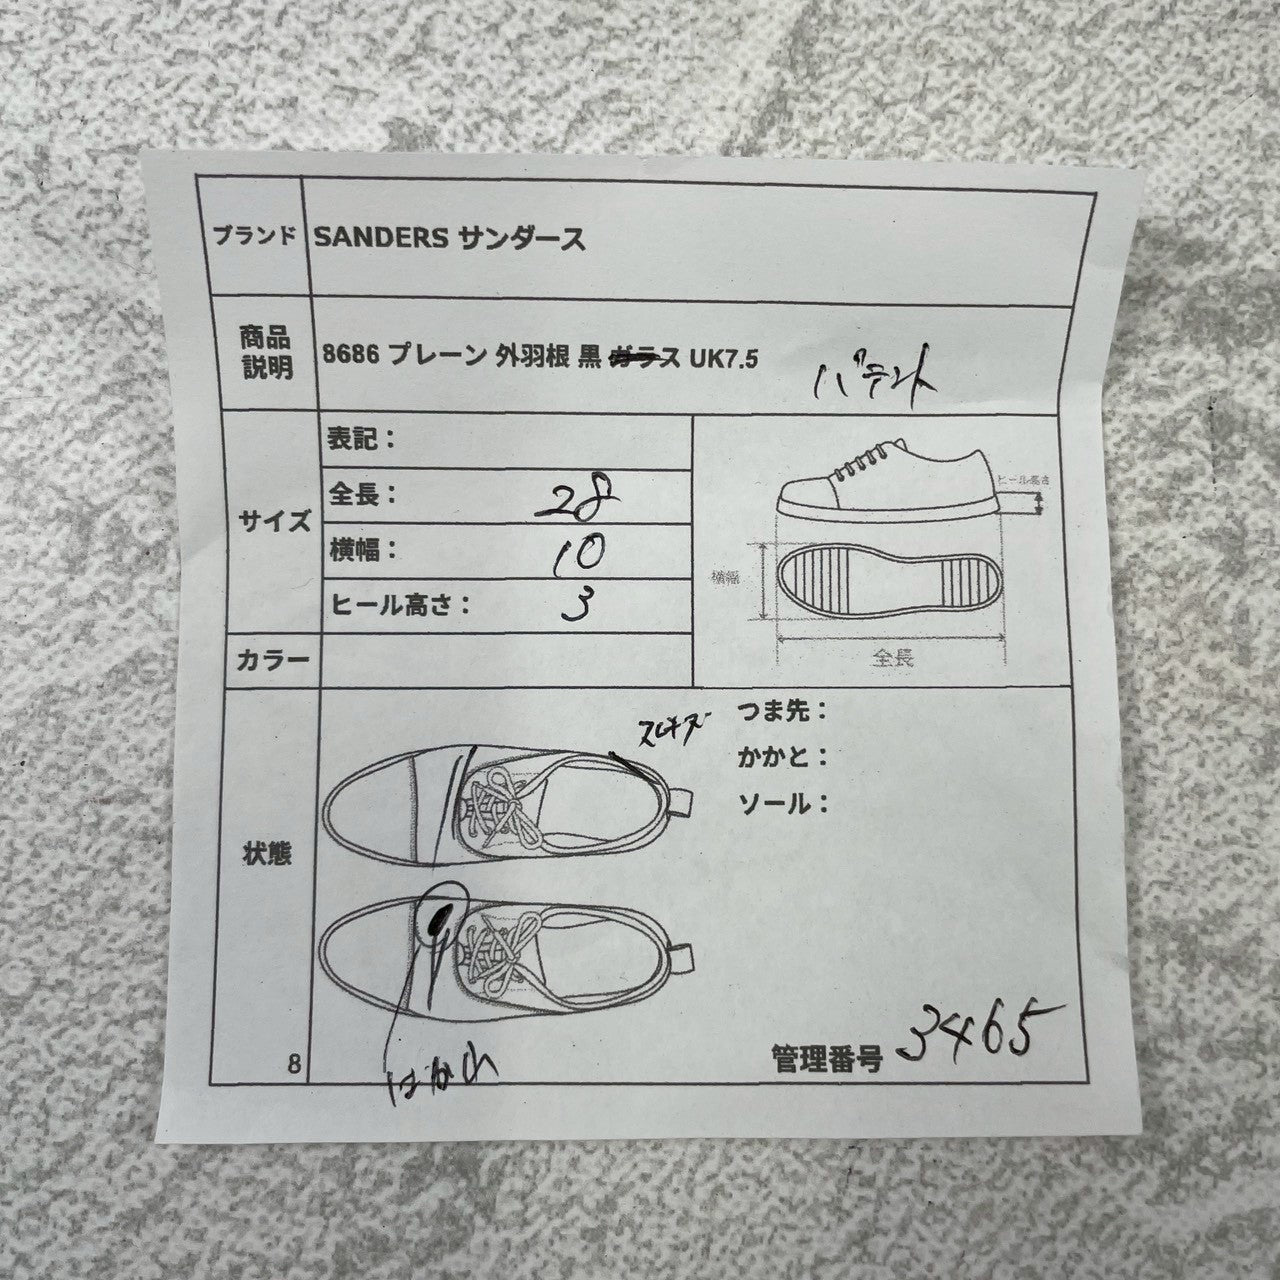 ブランド SANDERS サンダース
商品説明 8686 プレーン 外羽根 黒 ガラス UK7.5 パテント
サイズ
表記：
全長： 28
横幅： 10
ヒール高さ： 3
ヒール高さ
横幅
全長
カラー
状態
スレキズ
つま先：
かかと：
ソール：
はがれ
8
管理番号 3465